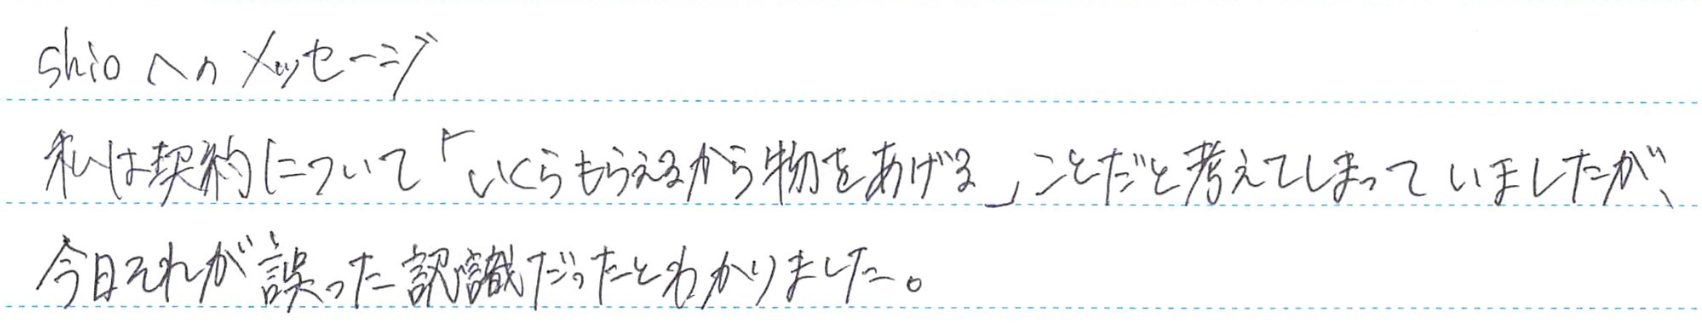 shioへのメッセージ
私は契約について「いくらもらえるから物をあげる」ことだと考えてしまっていましたが、
今日それが誤った認識だったとわかりました。